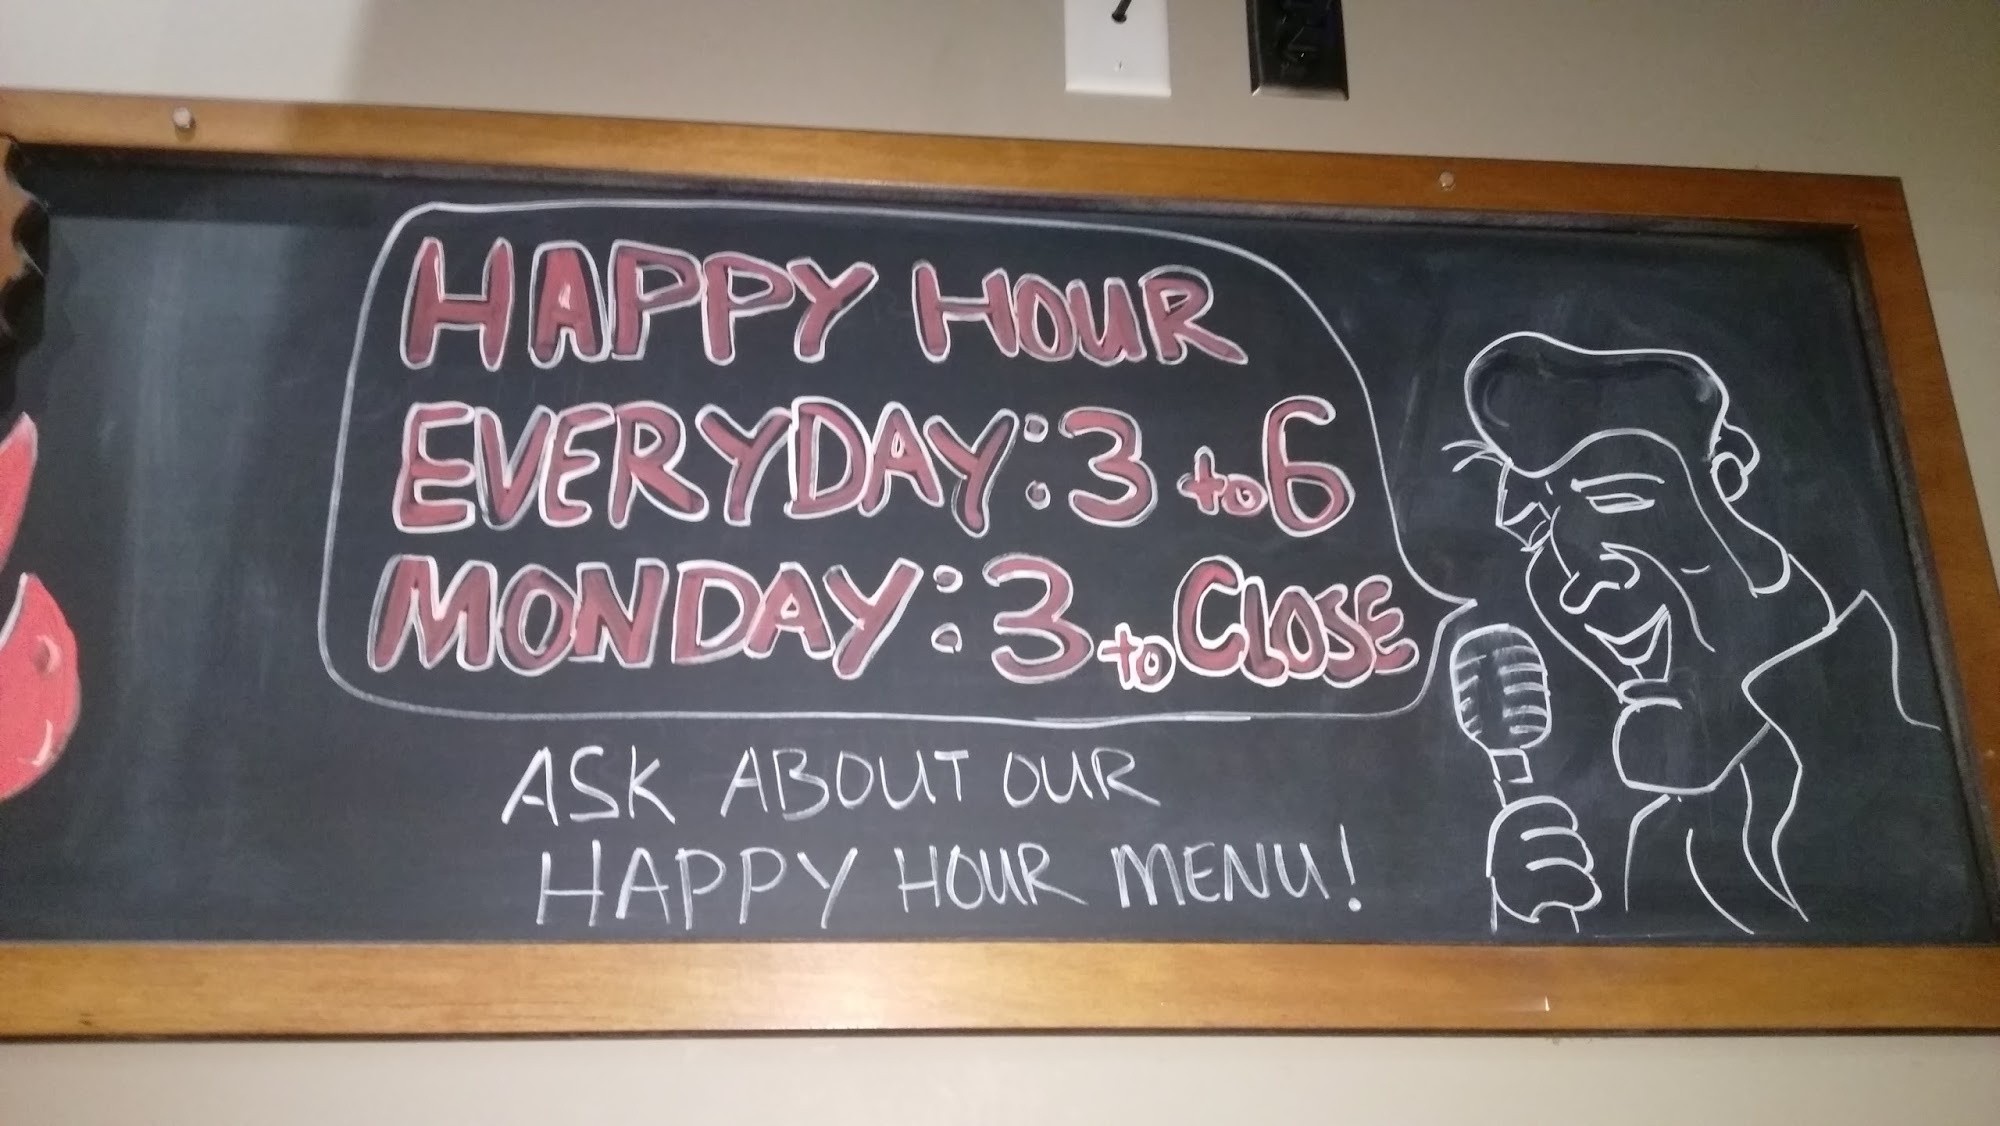 HAPPY HOUR
EVERYDAY: 3 to 6
MONDAY: 3 to CLOSE
ASK ABOUT OUR
HAPPY HOUR MENU!